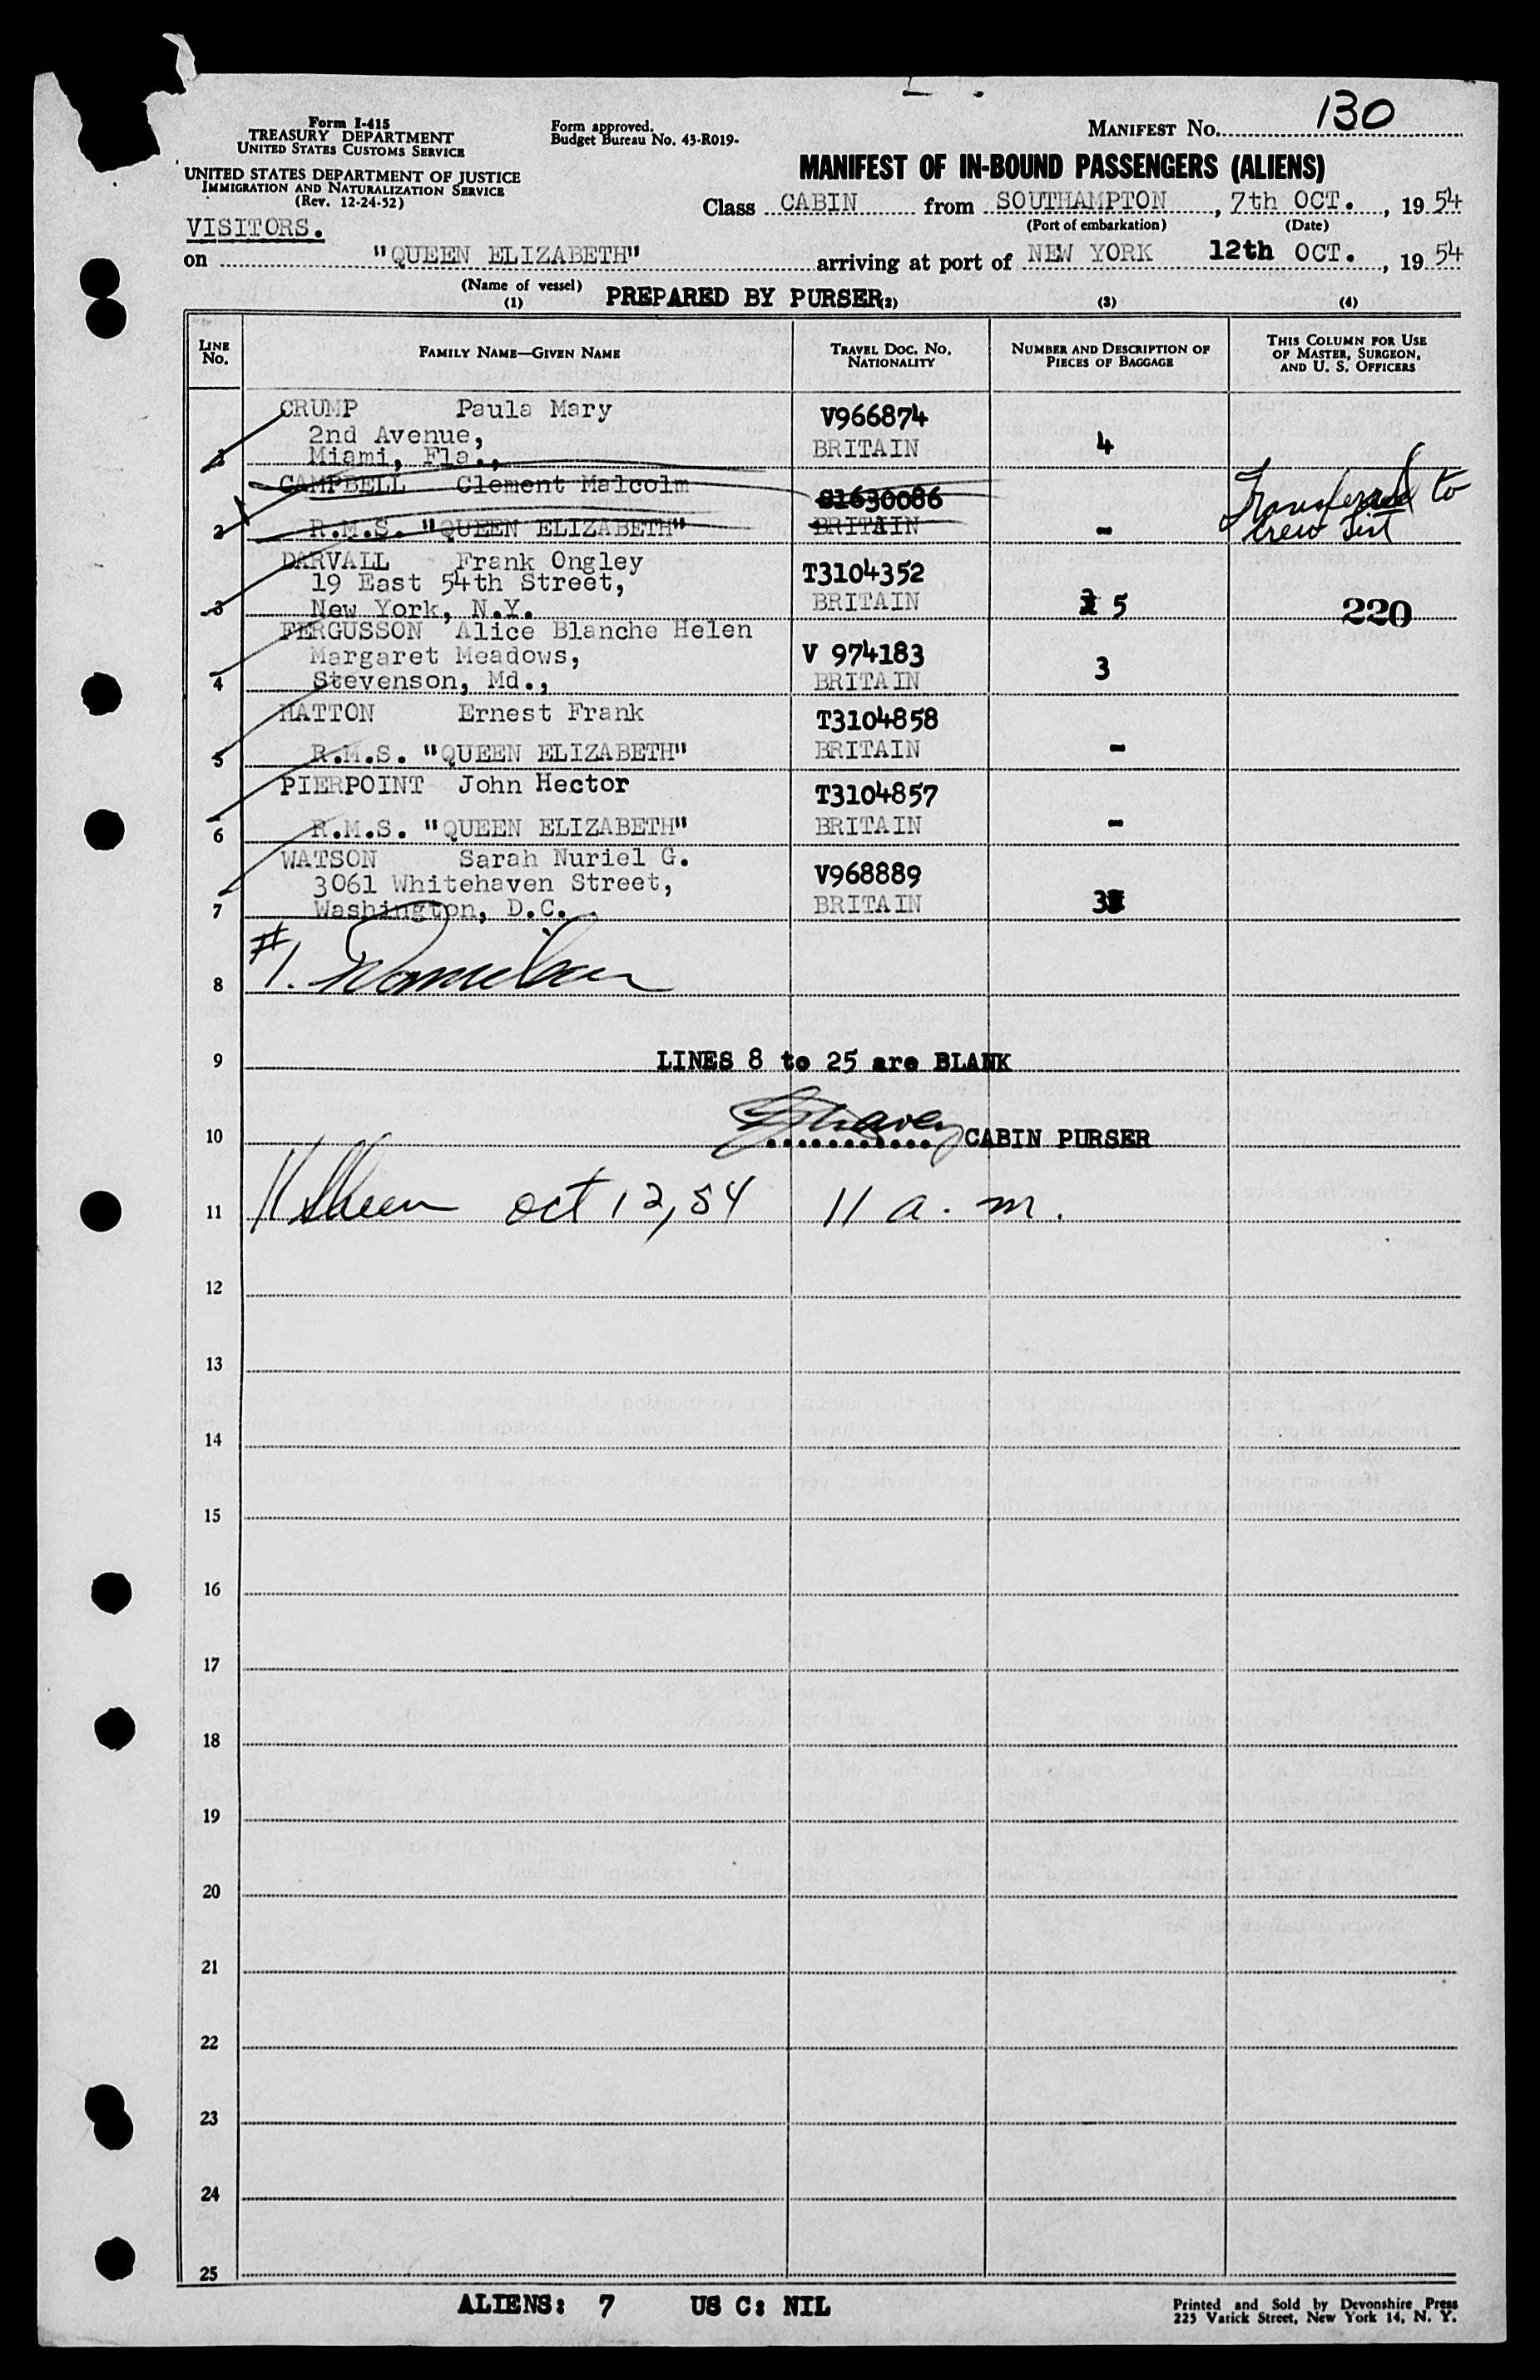 130
Form I-415
TREASURY DEPARTMENT
UNITED STATES CUSTOMS SERVICE
Form approved.
Budget Bureau No. 43-R019-
MANIFEST No.
UNITED STATES DEPARTMENT OF JUSTICE
IMMIGRATION AND NATURALIZATION SERVICE
(Rev. 12-24-52)
MANIFEST OF IN-BOUND PASSENGERS (ALIENS)
Class CABIN from SOUTHAMPTON, 7th OCT., 1954
(Port of embarkation) (Date)
VISITORS.
on "QUEEN ELIZABETH" arriving at port of NEW YORK 12th OCT., 1954
(Name of vessel)
(1) PREPARED BY PURSER (2) (3) (4)
LINE No. FAMILY NAME—GIVEN NAME TRAVEL DOC. NO. NATIONALITY NUMBER AND DESCRIPTION OF PIECES OF BAGGAGE THIS COLUMN FOR USE OF MASTER, SURGEON, AND U. S. OFFICERS
CRUMP Paula Mary V966874
2nd Avenue, BRITAIN 4
1 Miami, Fla.,
CAMPBELL Clement Malcolm S1630086 Transferred to
2 R.M.S. "QUEEN ELIZABETH" BRITAIN - Crew List
DARVALL Frank Ongley T3104352
19 East 54th Street, BRITAIN 5 220
3 New York, N.Y.
FERGUSSON Alice Blanche Helen
Margaret Meadows, V 974183 3
4 Stevenson, Md., BRITAIN
HATTON Ernest Frank T3104858
5 R.M.S. "QUEEN ELIZABETH" BRITAIN -
PIERPOINT John Hector T3104857
6 R.M.S. "QUEEN ELIZABETH" BRITAIN -
WATSON Sarah Nuriel G. V968889
3061 Whitehaven Street, BRITAIN 3
7 Washington, D.C.
#1.
8
9 LINES 8 to 25 are BLANK
10 CABIN PURSER
11 Oct 12, 54 11 a.m.
12
13
14
15
16
17
18
19
20
21
22
23
24
25
ALIENS: 7 US C: NIL
Printed and Sold by Devonshire Press
225 Varick Street, New York 14, N. Y.